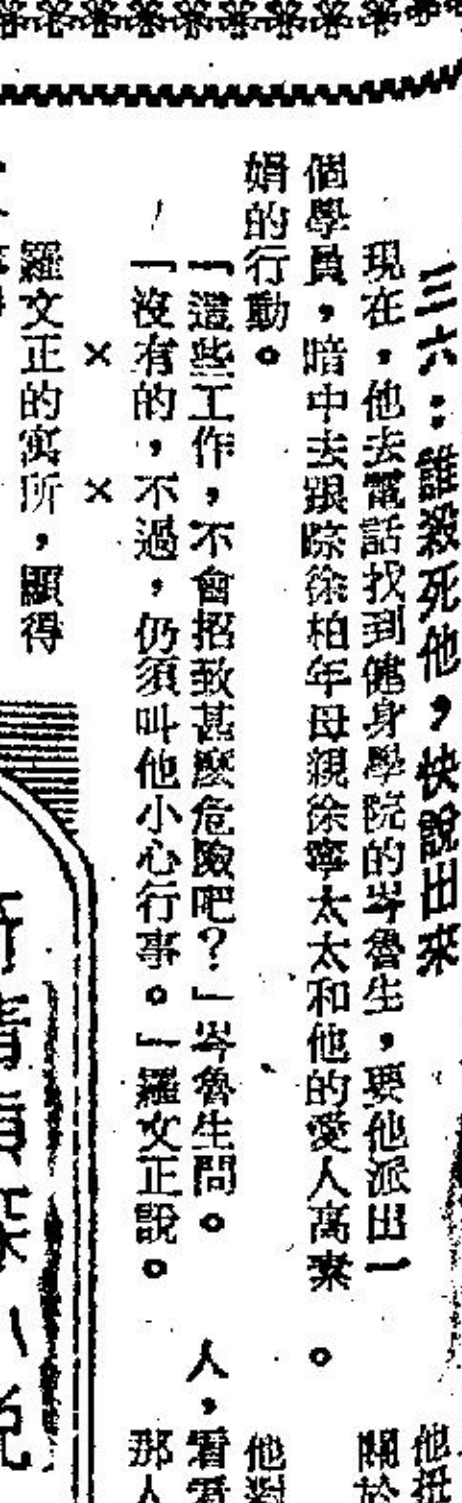 三六：誰殺死他，快說出來
現在，他去電話找到健身學院的岑魯生，要他派出一
個學員，暗中去跟踪徐柏年母親徐寧太太和他的愛人高素
娟的行動。
「這些工作，不會招致甚麼危險吧？」岑魯生問。
「沒有的，不過，仍須叫他小心行事。」羅文正說。
× ×
羅文正的寓所，顯得
。
關於
他對
人，看看
那人